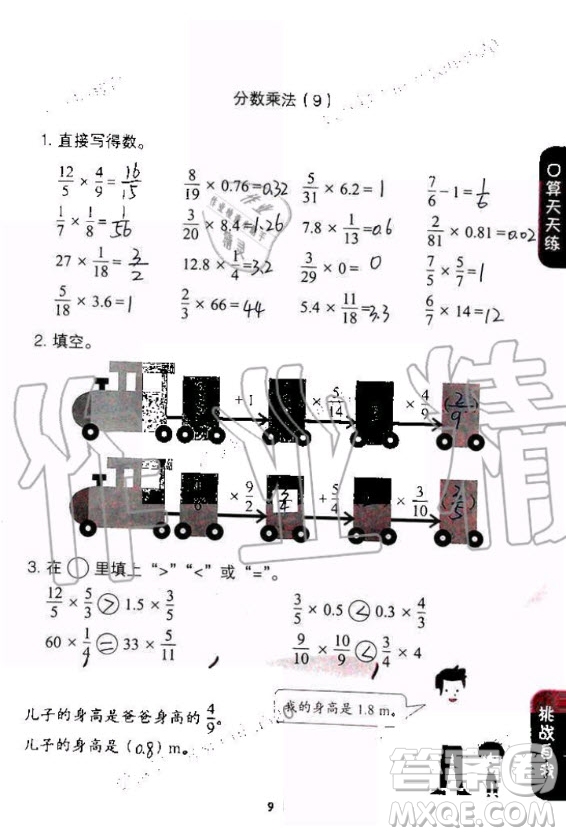 分数乘法(9)
1. 直接写得数。
12/5 × 4/9 = 16/15 8/19 × 0.76 = 0.32 5/31 × 6.2 = 1 7/6 - 1 = 1/6
1/7 × 1/8 = 1/56 3/20 × 8.4 = 1.26 7.8 × 1/13 = 0.6 2/81 × 0.81 = 0.02
27 × 1/18 = 3/2 12.8 × 1/4 = 3.2 3/29 × 0 = 0 7/5 × 5/7 = 1
5/18 × 3.6 = 1 2/3 × 66 = 44 5.4 × 11/18 = 3.3 6/7 × 14 = 12
口算天天练
2. 填空。
+1 × 5/14 × 4/9 (2/9)
× 9/2 3/4 + 5/4 × 3/10 (3/5)
3. 在○里填上“>”“<”或“=”。
12/5 × 5/3 > 1.5 × 3/5 3/5 × 0.5 < 0.3 × 4/3
60 × 1/4 = 33 × 5/11 9/10 × 10/9 < 3/4 × 4
我的身高是 1.8 m。
儿子的身高是爸爸身高的 4/9。
儿子的身高是(0.8)m。
挑战自我
9
作业精
答案圈
MXQE.COM